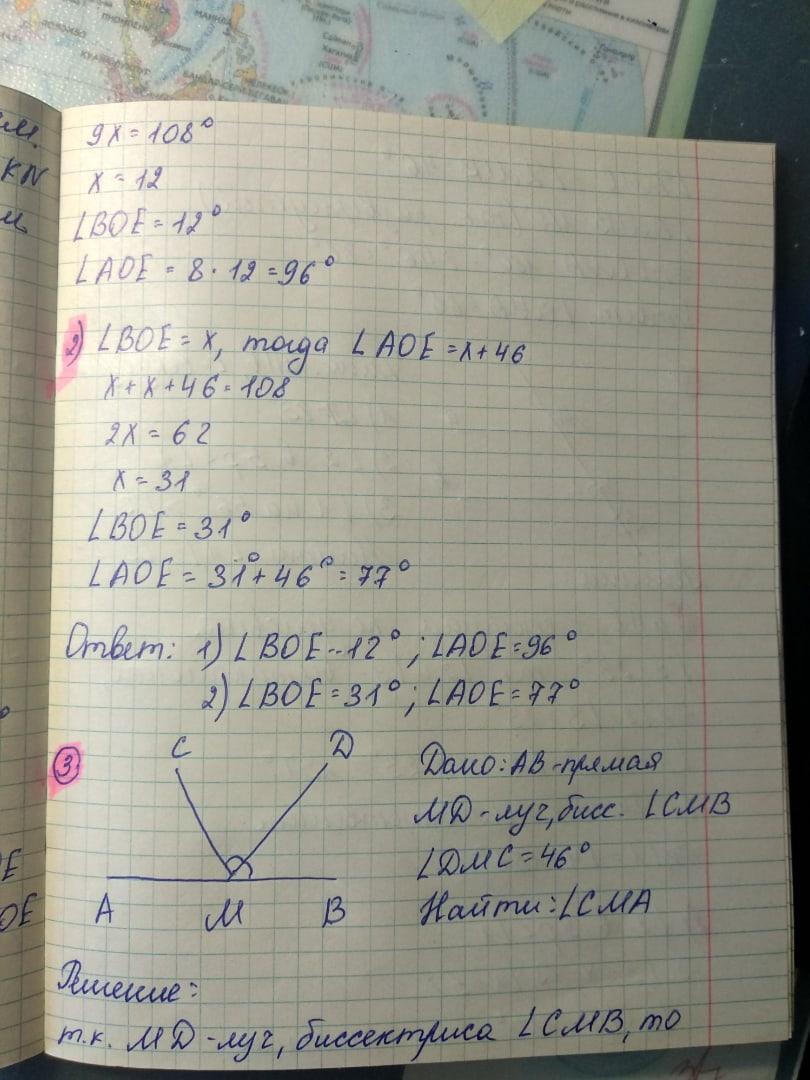 9x = 108°
x = 12
∠BOE = 12°
∠AOE = 8 · 12 = 96°
2) ∠BOE = x, тогда ∠AOE = x + 46
x + x + 46 = 108
2x = 62
x = 31
∠BOE = 31°
∠AOE = 31° + 46° = 77°
Ответ: 1) ∠BOE = 12°; ∠AOE = 96°
2) ∠BOE = 31°; ∠AOE = 77°
3
C D
A M B
Дано: AB - прямая
MD - луч, бисс. ∠CMB
∠DMC = 46°
Найти: ∠CMA
Решение:
т.к. MD - луч, биссектриса ∠CMB, то